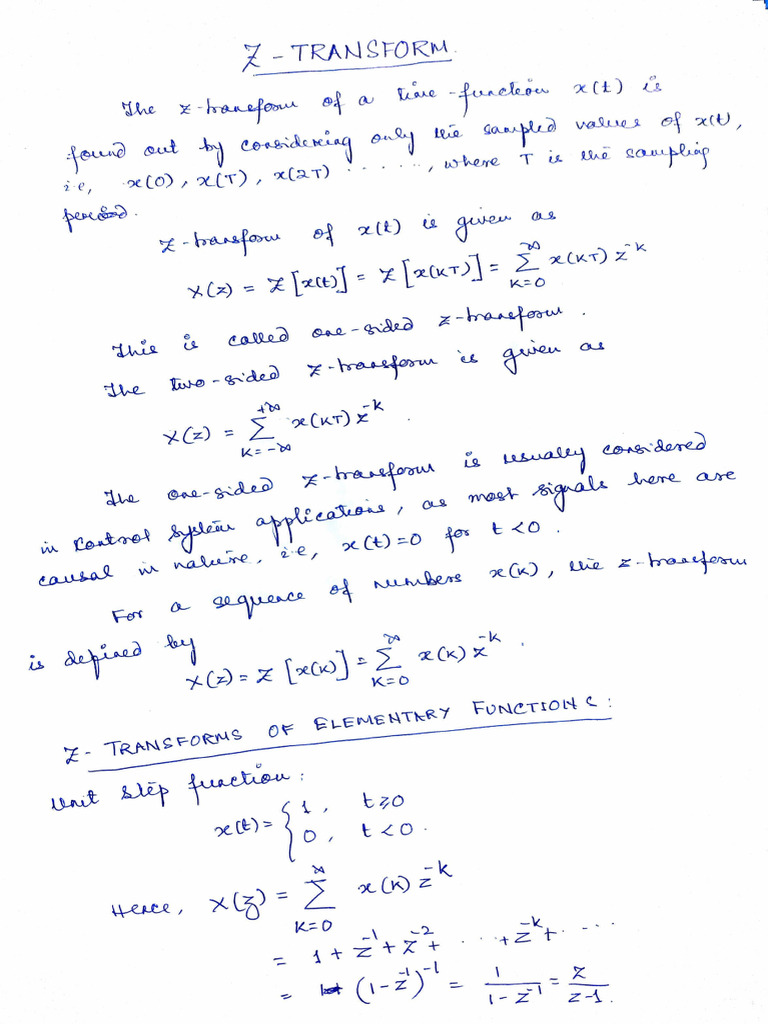 Z - TRANSFORM.
The z-transform of a time-function x(t) is
found out by considering only the sampled values of x(t),
i.e, x(0), x(T), x(2T) ......, where T is the sampling
period.
Z-transform of x(t) is given as
X(z) = Z[x(t)] = Z[x(KT)] = ∑_{K=0}^{∞} x(KT) z^{-k}
This is called one-sided z-transform.
The two-sided z-transform is given as
X(z) = ∑_{K=-∞}^{+∞} x(KT) z^{-k}.
The one-sided z-transform is usually considered
in control system applications, as most signals here are
causal in nature, i.e, x(t)=0 for t<0.
For a sequence of numbers x(k), the z-transform
is defined by
X(z) = Z [x(k)] = ∑_{K=0}^{∞} x(k) z^{-k}.
Z - TRANSFORMS OF ELEMENTARY FUNCTIONS:
Unit step function:
x(t) = { 1, t≥0
0, t<0.
Hence, X(z) = ∑_{K=0}^{∞} x(k) z^{-k}
= 1 + z^{-1} + z^{-2} + ... + z^{-k} + ....
= (1-z^{-1})^{-1} = 1/(1-z^{-1}) = z/(z-1).